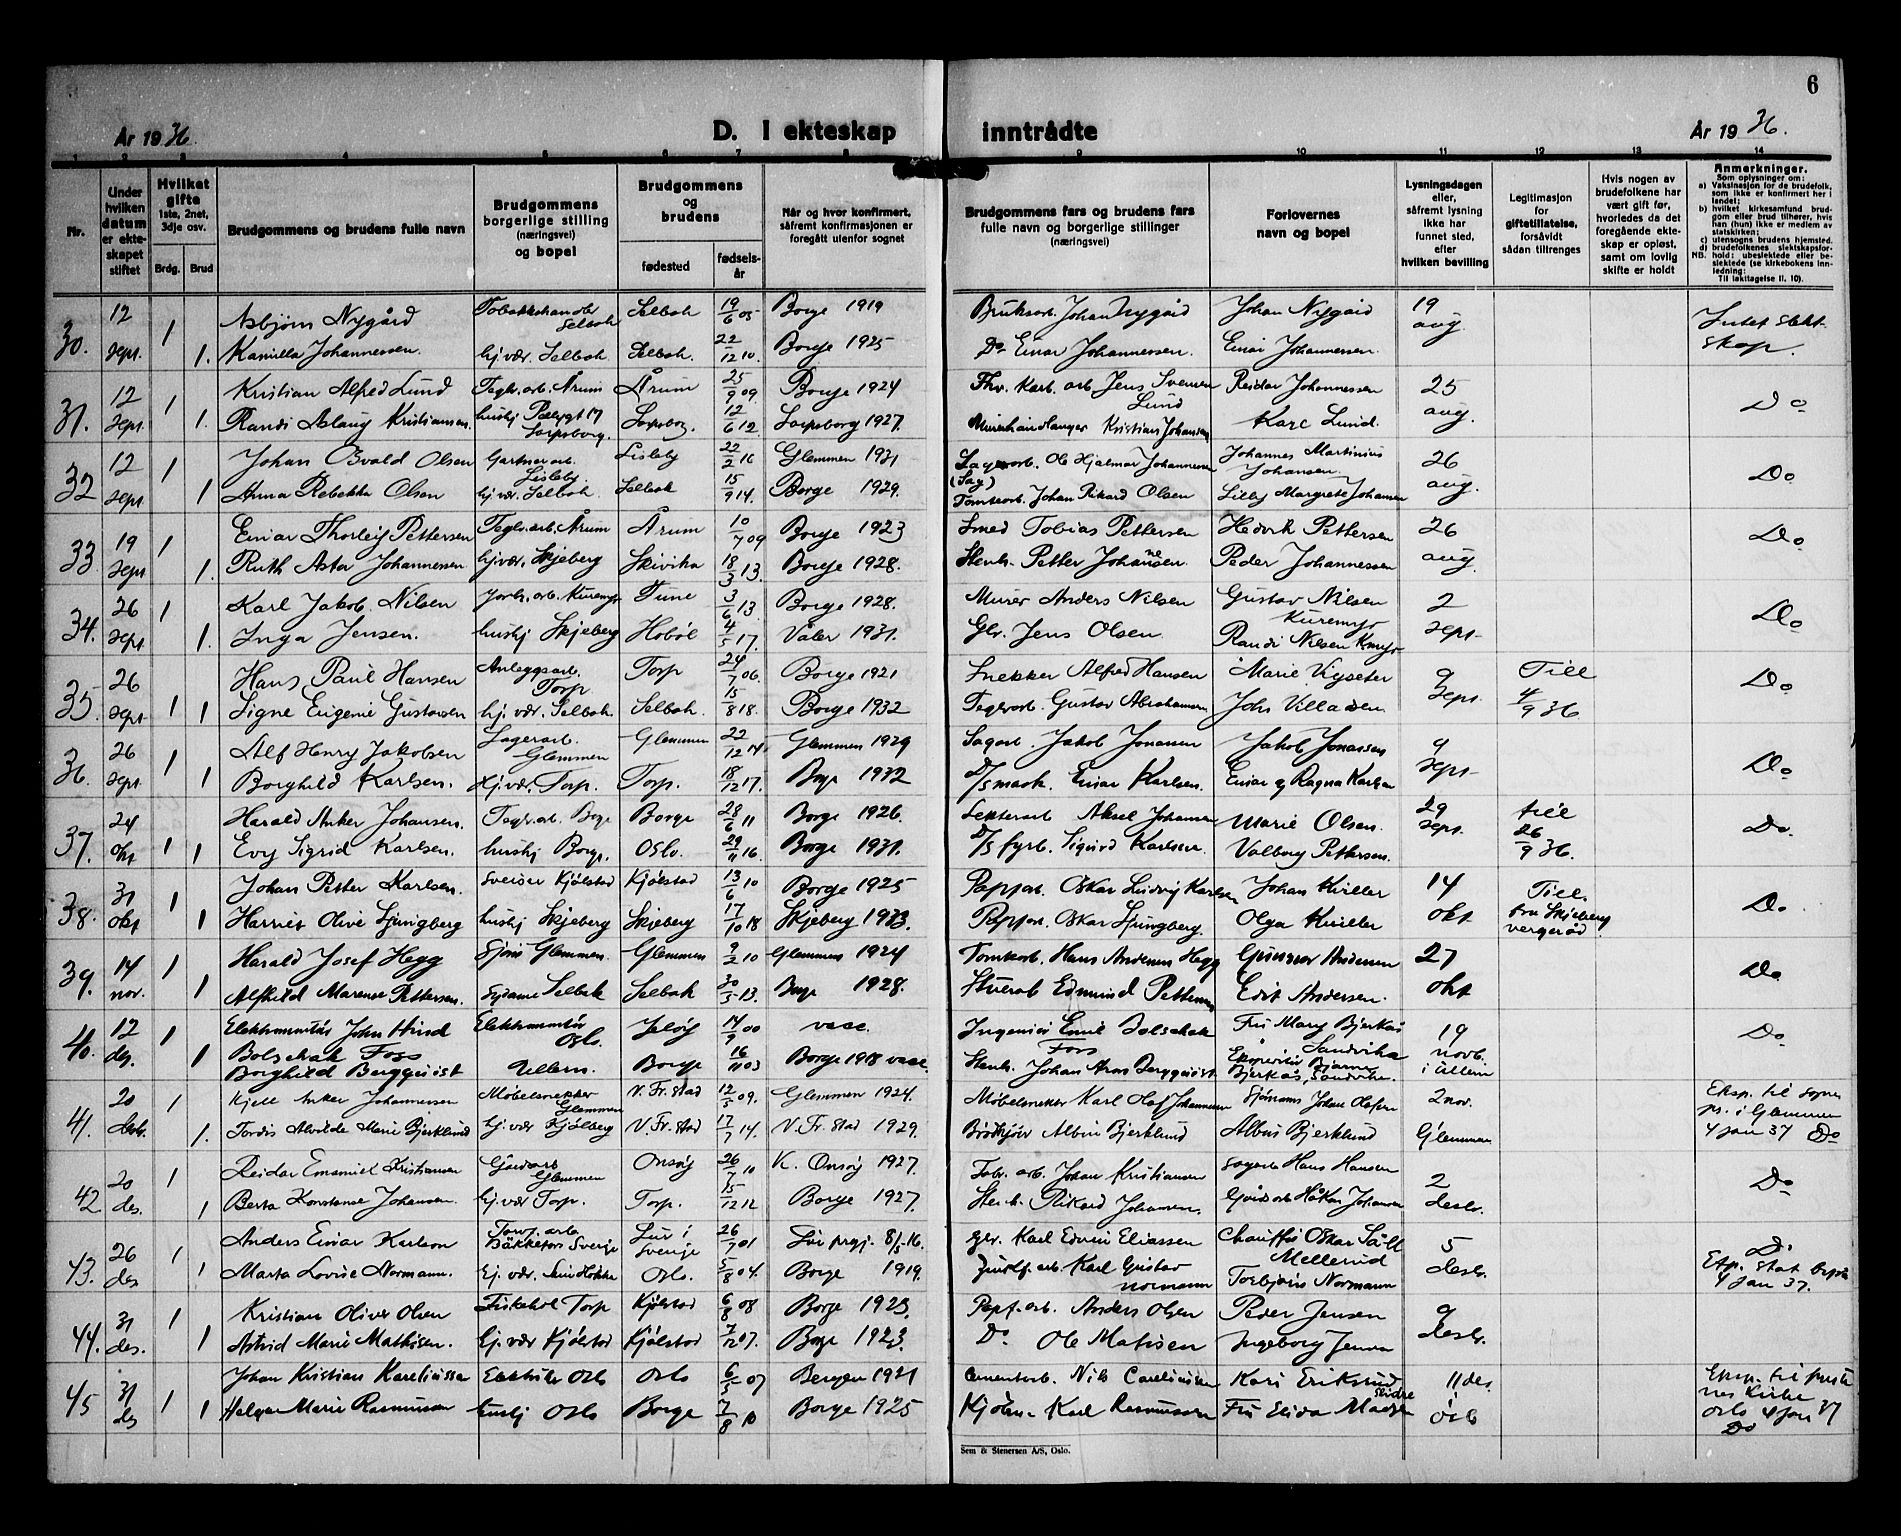 6
År 1936.
D. I ekteskap inntrådte
År 1936.
1 2 3 4 5 6 7 8 9 10 11 12 13 14
Nr.
Under hvilken datum er ekteskapet stiftet
Hvilket gifte 1ste, 2net, 3dje osv.
Brdg. Brud
Brudgommens og brudens fulle navn
Brudgommens borgerlige stilling (næringsvei) og bopel
Brudgommens og brudens
fødested
fødselsår
Når og hvor konfirmert, såfremt konfirmasjonen er foregått utenfor sognet
Brudgommens fars og brudens fars fulle navn og borgerlige stillinger (næringsvei)
Forlovernes navn og bopel
Lysningsdagen eller, såfremt lysning ikke har funnet sted, efter hvilken bevilling
Legitimasjon for giftetillatelse, forsåvidt sådan tiltrenges
Hvis nogen av brudefolkene har vært gift før, hvorledes da det foregående ekteskap er opløst, samt om lovlig skifte er holdt
Anmerkninger.
Som oplysninger om:
a) Vaksinasjon for de brudefolk, som ikke er konfirmert her i landet;
b) hvilket kirkesamfund brudgom eller brud tilhører, hvis han (hun) ikke er medlem av statskirken;
c) utensogns brudens hjemsted.
d) brudefolkenes slektskapsforhold: ubeslektede eller beslektede (se kirkebokens innledning:
NB.
Til iakttagelse II. 10).
30. 12 sept. 1 Asbjørn Nygård Selbak Selbak 19/6 05 Borge 1919 Johan Nygård Johan Nygård 19 aug Intet slektskap.
1. Kamilla Johannessen. hj.vær. Selbak Selbak. 22/12 10. Borge 1925 Do Einar Johannessen. Einar Johannessen.
31. 12 sept. 1 Kristian Alfred Lund Teglv.arb. Årum Årum 25/9 09 Borge 1924 Jens Lund Reidar Johannessen 25 aug. Do
1. Randi Aslaug Kristiansen. hushj Sarpsborg. Sarpsborg. 12/6 12. Sarpsborg 1927. Kristian Johansen Kåre Lund.
32 12 sept 1 Johan Osvald Olsen Gartnerarb. Lisleby Lisleby 22/2 16 Glemmen 1931 Ole Hjalmar Johannessen (Sag) Johannes Martinius Johansen. 26 aug. Do
1 Anna Rebekka Olsen hj.vær. Selbak. Selbak 15/9 14. Borge 1929. Tomtearb. Johan Rikard Olsen Lilly Margrete Johansen
33 19 sept 1 Einar Thorleif Pettersen Teglv.arb. Årum Årum 10/7 09 Borge 1923 Smed Tobias Pettersen Hedvik Pettersen 26 aug. Do
1. Ruth Asta Johannessen hj.vær. Skjeberg Skivika 18/3 13. Borge 1928. Stenh. Petter Johansen Peder Johannessen
34. 26 sept. 1 Karl Jakob Nilsen Jordb.arb. Kuremyr Tune 3/6 13 Borge 1928. Murer Anders Nilsen Gustav Nilsen Kuremyr 2 sept. Do
1. Inga Jensen. hushj Skjeberg Hobøl 4/5 17. Våler 1931. Jens Olsen. Randi Nilsen
35. 26 sept 1 Hans Paul Hansen Anleggsarb. Torp Torp 24/7 06. Borge 1921 Snekker Alfred Hansen Marie 9 sept. Till 4/9 36 Do
1 Signe Eugenie Gustavsen hj.vær. Selbak Selbak. 15/8 18. Borge 1932 Teglv.arb. Gustav Abrahamsen John Villadsen
36. 26 sept 1 Alf Henry Jakobsen Lagerarb. Glemmen Glemmen 22/12 14 Glemmen 1929 Sagarb. Jakob Jonassen Jakob Jonassen 9 sept. Do
1 Borghild Karlsen. Hj.vær. Torp. Torp. 18/12 17. Borge 1932 D/s mask. Einar Karlsen. Einar og Ragna Karlsen
37. 24 okt 1 Harald Anker Johansen. Teglv.arb. Borge Borge 28/6 11 Borge 1926. Aksel Johansen Marie Olsen. 29 sept. till 26/9 36. Do.
1 Evy Sigrid Karlsen. hushj Borge. Oslo. 29/11 16. Borge 1931. D/s fyrb. Sigurd Karlsen. Valborg Pettersen.
38. 31 okt 1 Johan Petter Karlsen. Sveiser Kjølstad Kjølstad 13/6 10 Borge 1925 Papparb. Oskar Ludvig Karlsen Johan Kviller 14 okt Till. fra Skjeberg vergeråd Do.
1 Harriet Olive Ljungberg hushj Skjeberg Skjeberg 17/10 18 Skjeberg 1933. Papparb. Oskar Ljungberg. Olga Kviller
39. 14 nov. 1 Harald Josef Hegg Sjåfør Glemmen. Glemmen 9/2 10 Glemmen 1924 Tomtearb. Hans Andersen Hegg Gunnar Andersen 27 okt Do
1 Alfhild Marense Pettersen. Sydame Selbak Selbak 30/5 13. Borge 1928. Edmund Pettersen Edit Andersen.
40. 12 des. 1 Elektromontør John Hind Bolschak Foss Elektromontør Oslo. Jeløy 14/9 00 vacc. Ingeniør Emil Bolschak Foss Fru Mary Bjerkås Sandvika 19 novb. i Ullern Do
1 Borghild Bergquist Ullern. Borge 16/11 03 Borge 1918 vacc. Stenh. Johan Aron Bergquist Bjarne Bjerkås, Sandvika.
41. 20 desb. 1 Kjell Anker Johannessen Møbelsnekker Glemmen V. Fr.stad 12/5 09. Glemmen 1924. Møbelsnekker Karl Olaf Johannessen Johan Olafsen 2 nov. Glemmen Eksp. til sogneps. i Glemmen 4 jan 37 Do
1. Tordis Alvilde Marie Bjerklund hj.vær Kjølberg V. Fr.stad 17/7 14. V. Fr.stad 1929. Albin Bjerklund Albin Bjerklund
42 20 des. 1 Reidar Emanuel Kristiansen Glemmen Onsøy 26/7 10 V. Onsøy 1927. Fabr.arb. Johan Kristiansen Hans Hansen 2 desb. Do
1 Berta Konstanse Johansen. hj.vær Torp. Torp. 15/12 12 Borge 1927. Stenh. Rikard Johansen. Håkon Johansen
43. 26 des 1 Anders Einar Karlson Torvf.arb. Bäckefors Sverige Lur i Sverige 26/7 01 Lur 8/5-16. Karl Edvin Eliassen Chauffør Oskar Säll Mellerud 5 desb. Do. Eksp. stat 4 jan 37.
1 Marta Lovise Normann. Hj.vær. Oslo. 5/8 04. Borge 1919. Karl Gustav Normann Torbjørn Normann
44. 31 des. 1 Kristian Oliver Olsen Fiskehdl Torp Kjølstad 6/8 08 Borge 1923. Papf.arb. Anders Olsen Peder Jensen 9 desb.
1 Astrid Marie Mathisen. Hj.vær Kjølstad Kjølstad 7/12 07. Borge 1923. Do. Ole Matisen Ingeborg Jensen
45 31 des 1 Johan Kristian Kareliussen Elektriker Oslo Oslo 6/5 07 Bergen 1921 Cementarb. Nils Careliussen Kari Eriksrud Slidre 11 des. Oslo Eksp. til Oslo 4 jan 37 Do
1 Helga Marie Rasmussen hushj Oslo Borge 7/8 10 Borge 1925 Karl Rasmussen Fru Elida Madsen
Sem & Stenersen A/S, Oslo.